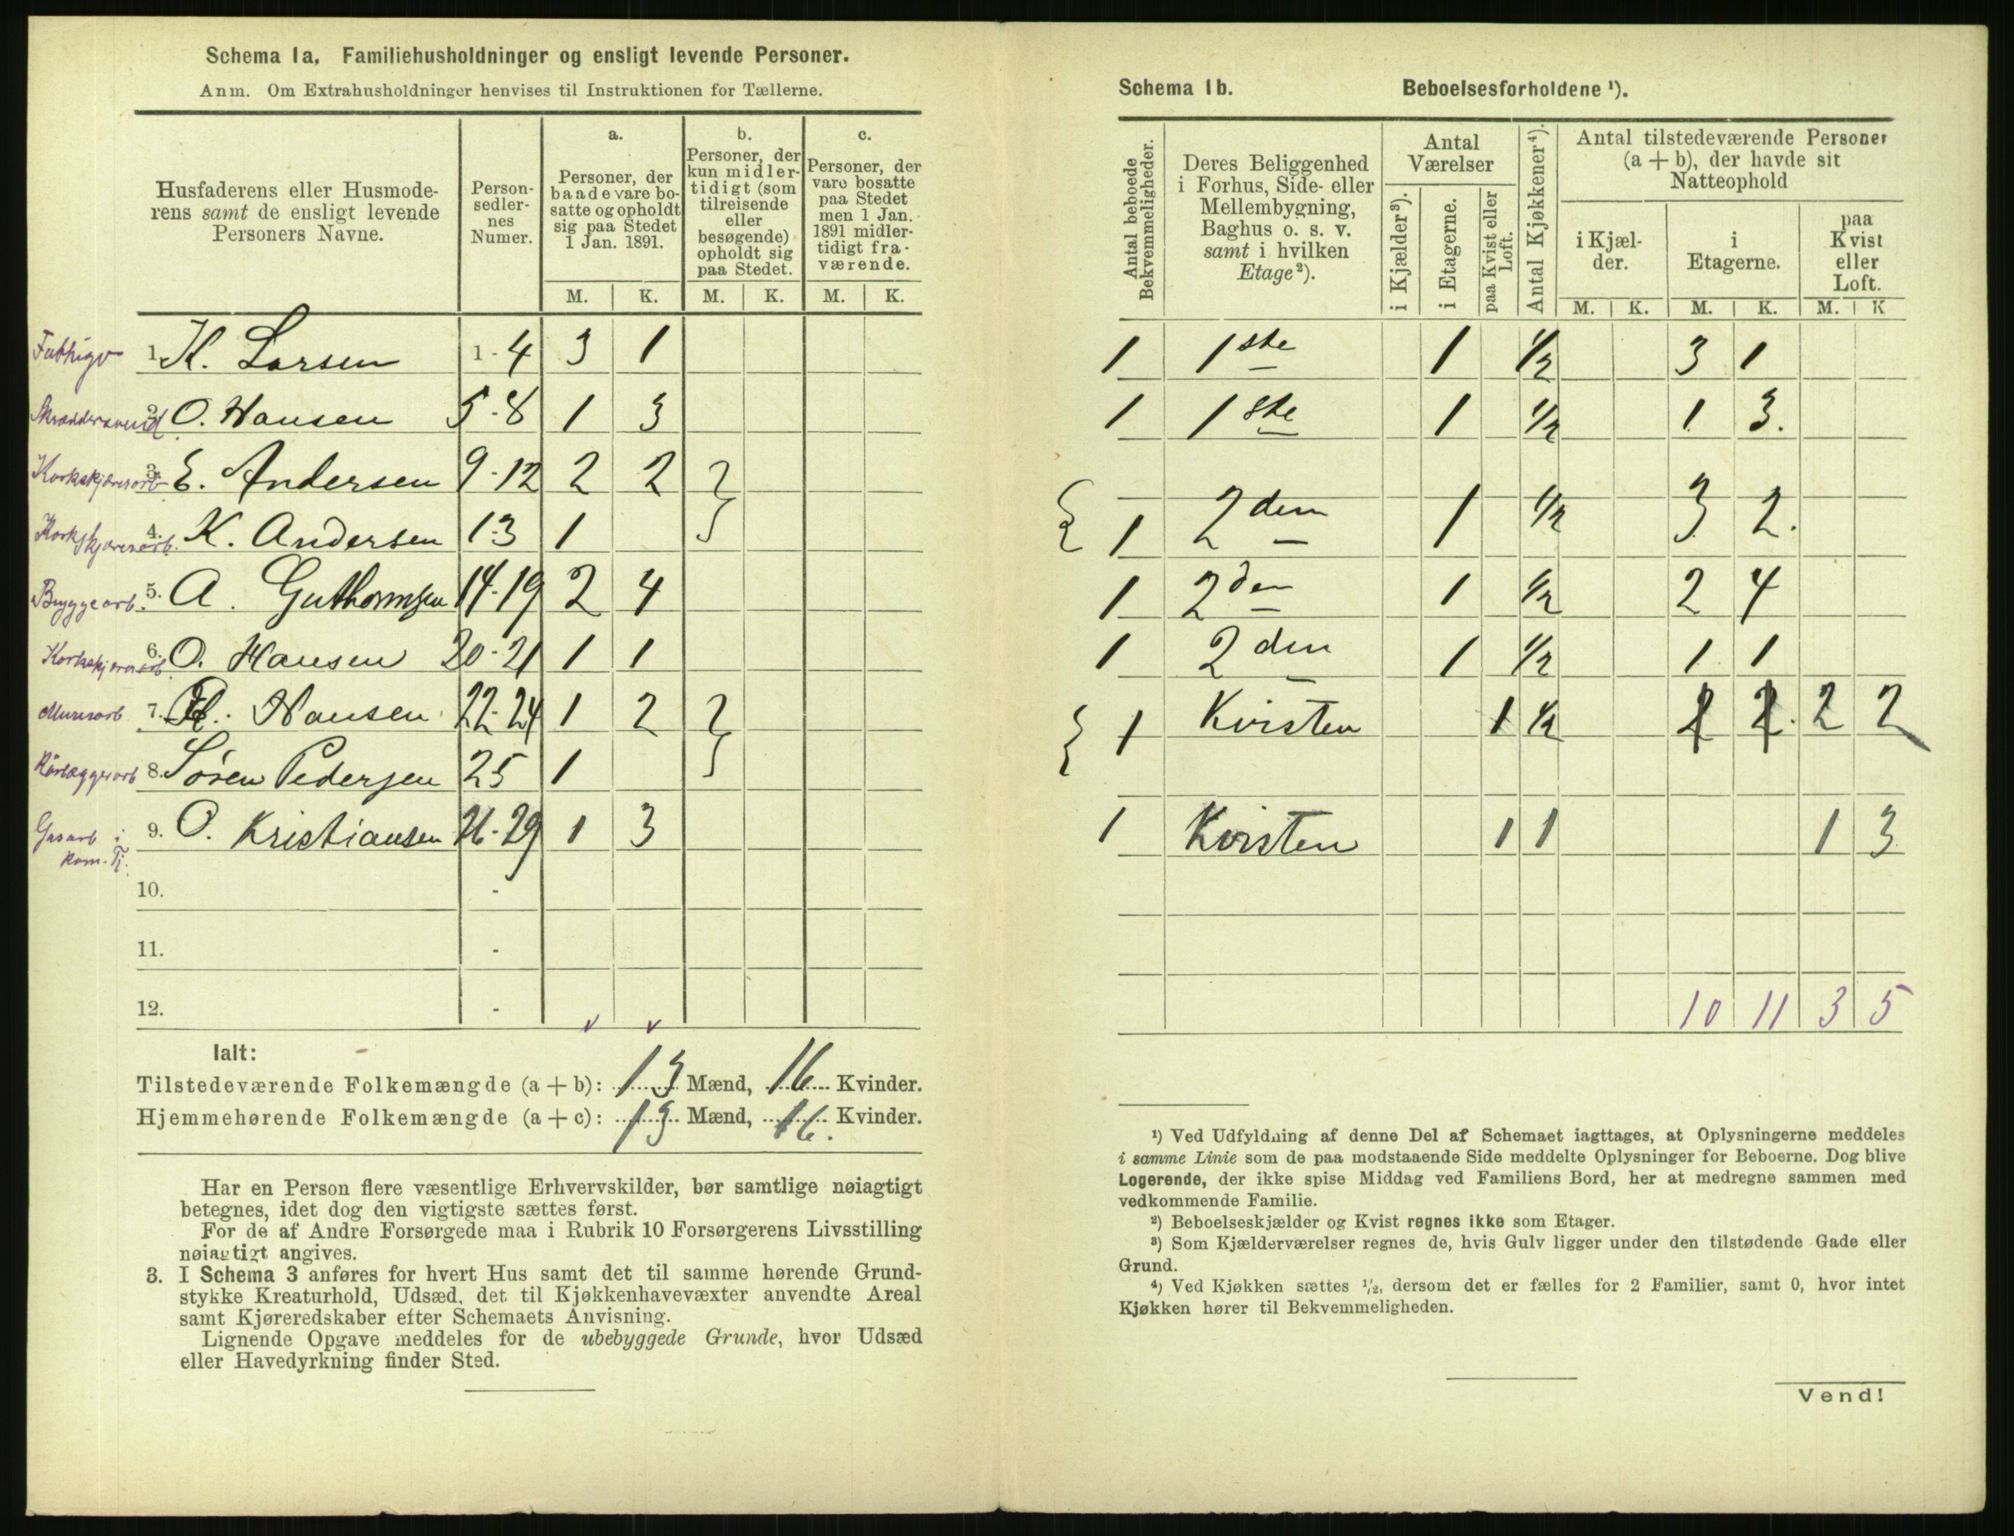 Schema 1a. Familiehusholdninger og ensligt levende Personer.
Anm. Om Extrahusholdninger henvises til Instruktionen for Tællerne.
Husfaderens eller Husmode-
rens samt de ensligt levende
Personers Navne.
Person-
sedler-
nes
Numer.
a.
Personer, der
baade vare bo-
satte og opholdt
sig paa Stedet
1 Jan. 1891.
b.
Personer, der
kun midler-
tidigt (som
tilreisende
eller
besøgende)
opholdt sig
paa Stedet.
c.
Personer, der
vare bosatte
paa Stedet
men 1 Jan.
1891 midler-
tidigt fra-
værende.
M. K. M. K. M. K.
1. K. Larsen 1-4 3 1
Skræddersvend 2. O. Hansen 5-8 1 3
Korkskjærerarb 3. E. Andersen 9-12 2 2
Korkskjærerarb. 4. K. Andersen 13 1
Bryggearb. 5. A. Guthormsen 14-19 2 4
Korkskjærerarb. 6. O. Hansen 20-21 1 1
Murerarb 7. H. Hansen 22-24 1 2
Rørlæggerarb 8. Søren Pedersen 25 1
Gasarb i 9. O. Kristiansen 26-29 1 3
10. -
11. -
12. -
Ialt:
Tilstedeværende Folkemængde (a + b): 13 Mænd, 16 Kvinder.
Hjemmehørende Folkemængde (a + c): 13 Mænd, 16. Kvinder.
Har en Person flere væsentlige Erhvervskilder, bør samtlige nøiagtigt
betegnes, idet dog den vigtigste sættes først.
For de af Andre Forsørgede maa i Rubrik 10 Forsørgerens Livsstilling
nøiagtigt angives.
3. I Schema 3 anføres for hvert Hus samt det til samme hørende Grund-
stykke Kreaturhold, Udsæd, det til Kjøkkenhavevæxter anvendte Areal
samt Kjøreredskaber efter Schemaets Anvisning.
Lignende Opgave meddeles for de ubebyggede Grunde, hvor Udsæd
eller Havedyrkning finder Sted.
Schema 1b. Beboelsesforholdene ¹).
Antal beboede
Bekvemmeligheder.
Deres Beliggenhed
i Forhus, Side- eller
Mellembygning,
Baghus o. s. v.
samt i hvilken
Etage ²).
Antal
Værelser
i Kjælder ³).
i Etagerne.
paa Kvist eller
Loft.
Antal Kjøkkener ⁴).
Antal tilstedeværende Personer
(a + b), der havde sit
Natteophold
i Kjæl-
der.
i
Etagerne.
paa
Kvist
eller
Loft.
M. K. M. K. M. K
1 1ste 1 1/2 3 1
1 1ste 1 1/2 1 3.
1 2den 1 1/2 3 2.
1 2den 1 1/2 2 4
1 2den 1 1/2 1 1
1 Kvisten 1 1/2 2 2 2 2
1 Kvisten 1 1 1 3
10 11 3 5
¹) Ved Udfyldning af denne Del af Schemaet iagttages, at Oplysningerne meddeles
i samme Linie som de paa modstaaende Side meddelte Oplysninger for Beboerne. Dog blive
Logerende, der ikke spise Middag ved Familiens Bord, her at medregne sammen med
vedkommende Familie.
²) Beboelseskjælder og Kvist regnes ikke som Etager.
³) Som Kjælderværelser regnes de, hvis Gulv ligger under den tilstødende Gade eller
Grund.
⁴) Ved Kjøkken sættes ¹/₂, dersom det er fælles for 2 Familier, samt 0, hvor intet
Kjøkken hører til Bekvemmeligheden.
Vend!